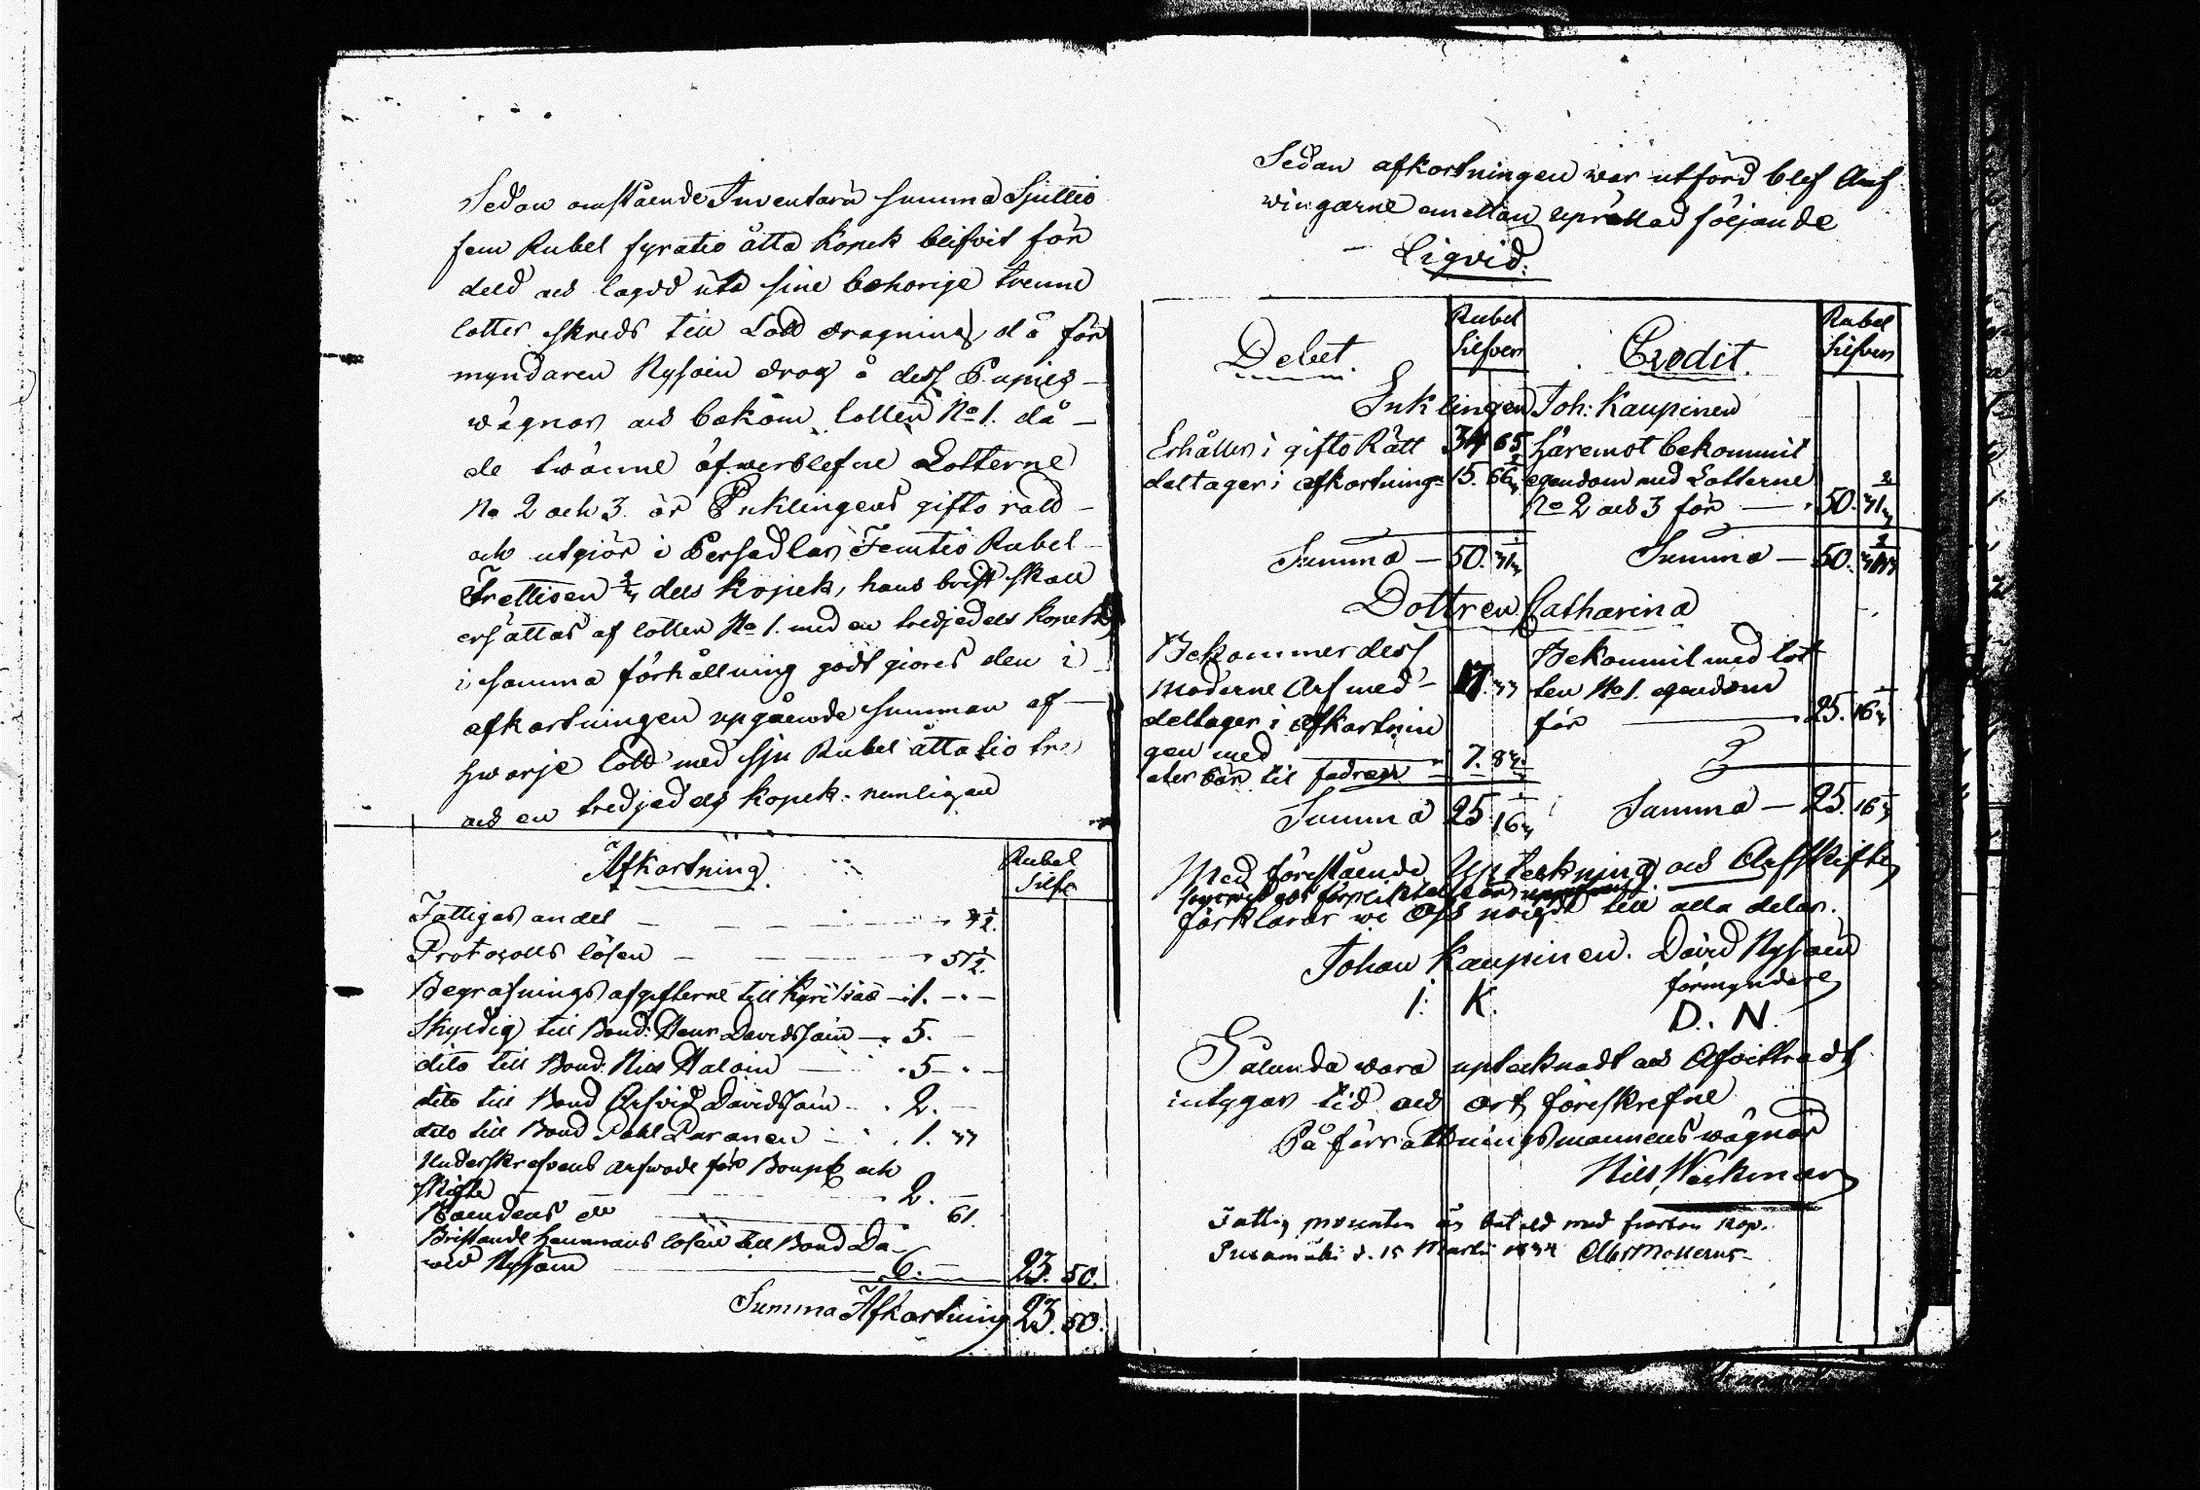 Sedan omstående Inventarii summa Sjuttio
fem Rubel fyratio åtta kopek blifvit för
deld och lagdd uta sine behorige trenne
lotter skreds till Lott dragning då för
myndaren Nysoin drog å dess Pupils
wägnar och bekom lotten No 1. då
de twänne öfwerblefne Lotterne
No 2 och 3 är Enklingens gifto rätt
och utgiör i Persedlar Femtio Rubel
Trettioen 2/3 dels kopek, hans brist skall
ersättas af lotten No 1. med en tredjedels kopek
i samma förhållning godt giores den i
afkortningen upgående summan af
hwarje lott med sju Rubel åttatio tre
och en tredjedels kopek. nemligen
Afkortning.
Rubel
Silfr
Fattigas andel 3 1/2.
Protocolls lösen 51 1/2.
Begrafnings afgifterne till Kyrckan 1.
Skyldig till Bond. Henr Davidssoin 5.
dito till Bond. Nils Haloin 5
dito till Bond Arfvid Davidssoin 2.
dito till Bond Pahl Paranen 1. 33
Underskrefvens arfwode för Boupt och
skifte 2.
61.
Bristande hemmans lösen till Bond Da-
wid Nysoin 6. 23. 50.
Summa Afkortning 23. 50.
Sedan afkortningen war utförd blef Arf
wingarne emellan uprättad följande
Liqvid.
Debet. Rubel Silfver Credit. Rubel Silfver
Enklingen Joh: Kaupinen
Erhåller i gifto Rätt 34 65 Häremot bekommit
deltager i afkortninge 15. 66 2/3 egendom med Lotterne
No 2 och 3 för 50. 31 2/3
Summa 50. 31 2/3 Summa 50. 31 2/3
Dottren Catharina
Bekommer dess Bekommit med lot
Moderne Arf med 17. 33 ten No 1. egendom
deltager i afkortnin för 25. 16 1/3
gen med 7. 83 1/3
Summa 25 16 1/3 Summa 25. 16 1/3
Med förestående Upteckning och Arfskifte
förklarar wi Oss nöigd till alla delar.
Johan Kaupinen. David Nysoin
förmyndare
I. K. D. N.
Sålunda wara uptecknadt och Afvittradt
intygar tid och ort föreskrefne
På förrättningsmannens wägnar
Nils Wäckman
Fattig procenten är betald med fiorton kop.
d. 15 Martii 1834